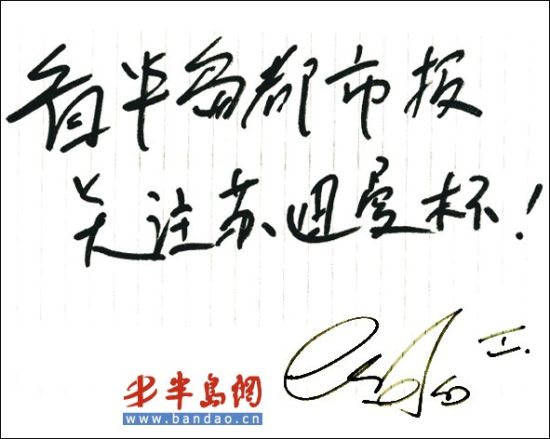 看半岛都市报
关注苏迪曼杯!
半岛网
www.bandao.cn